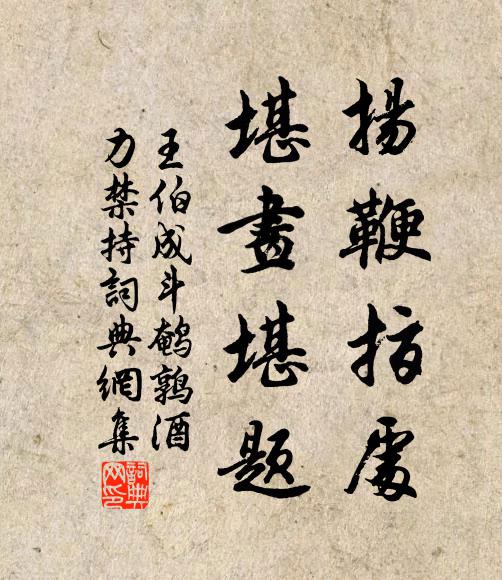 揚鞭指處
堪畫堪題
王伯成斗鹌鹑酒
力禁持詞典網集
詞典網印